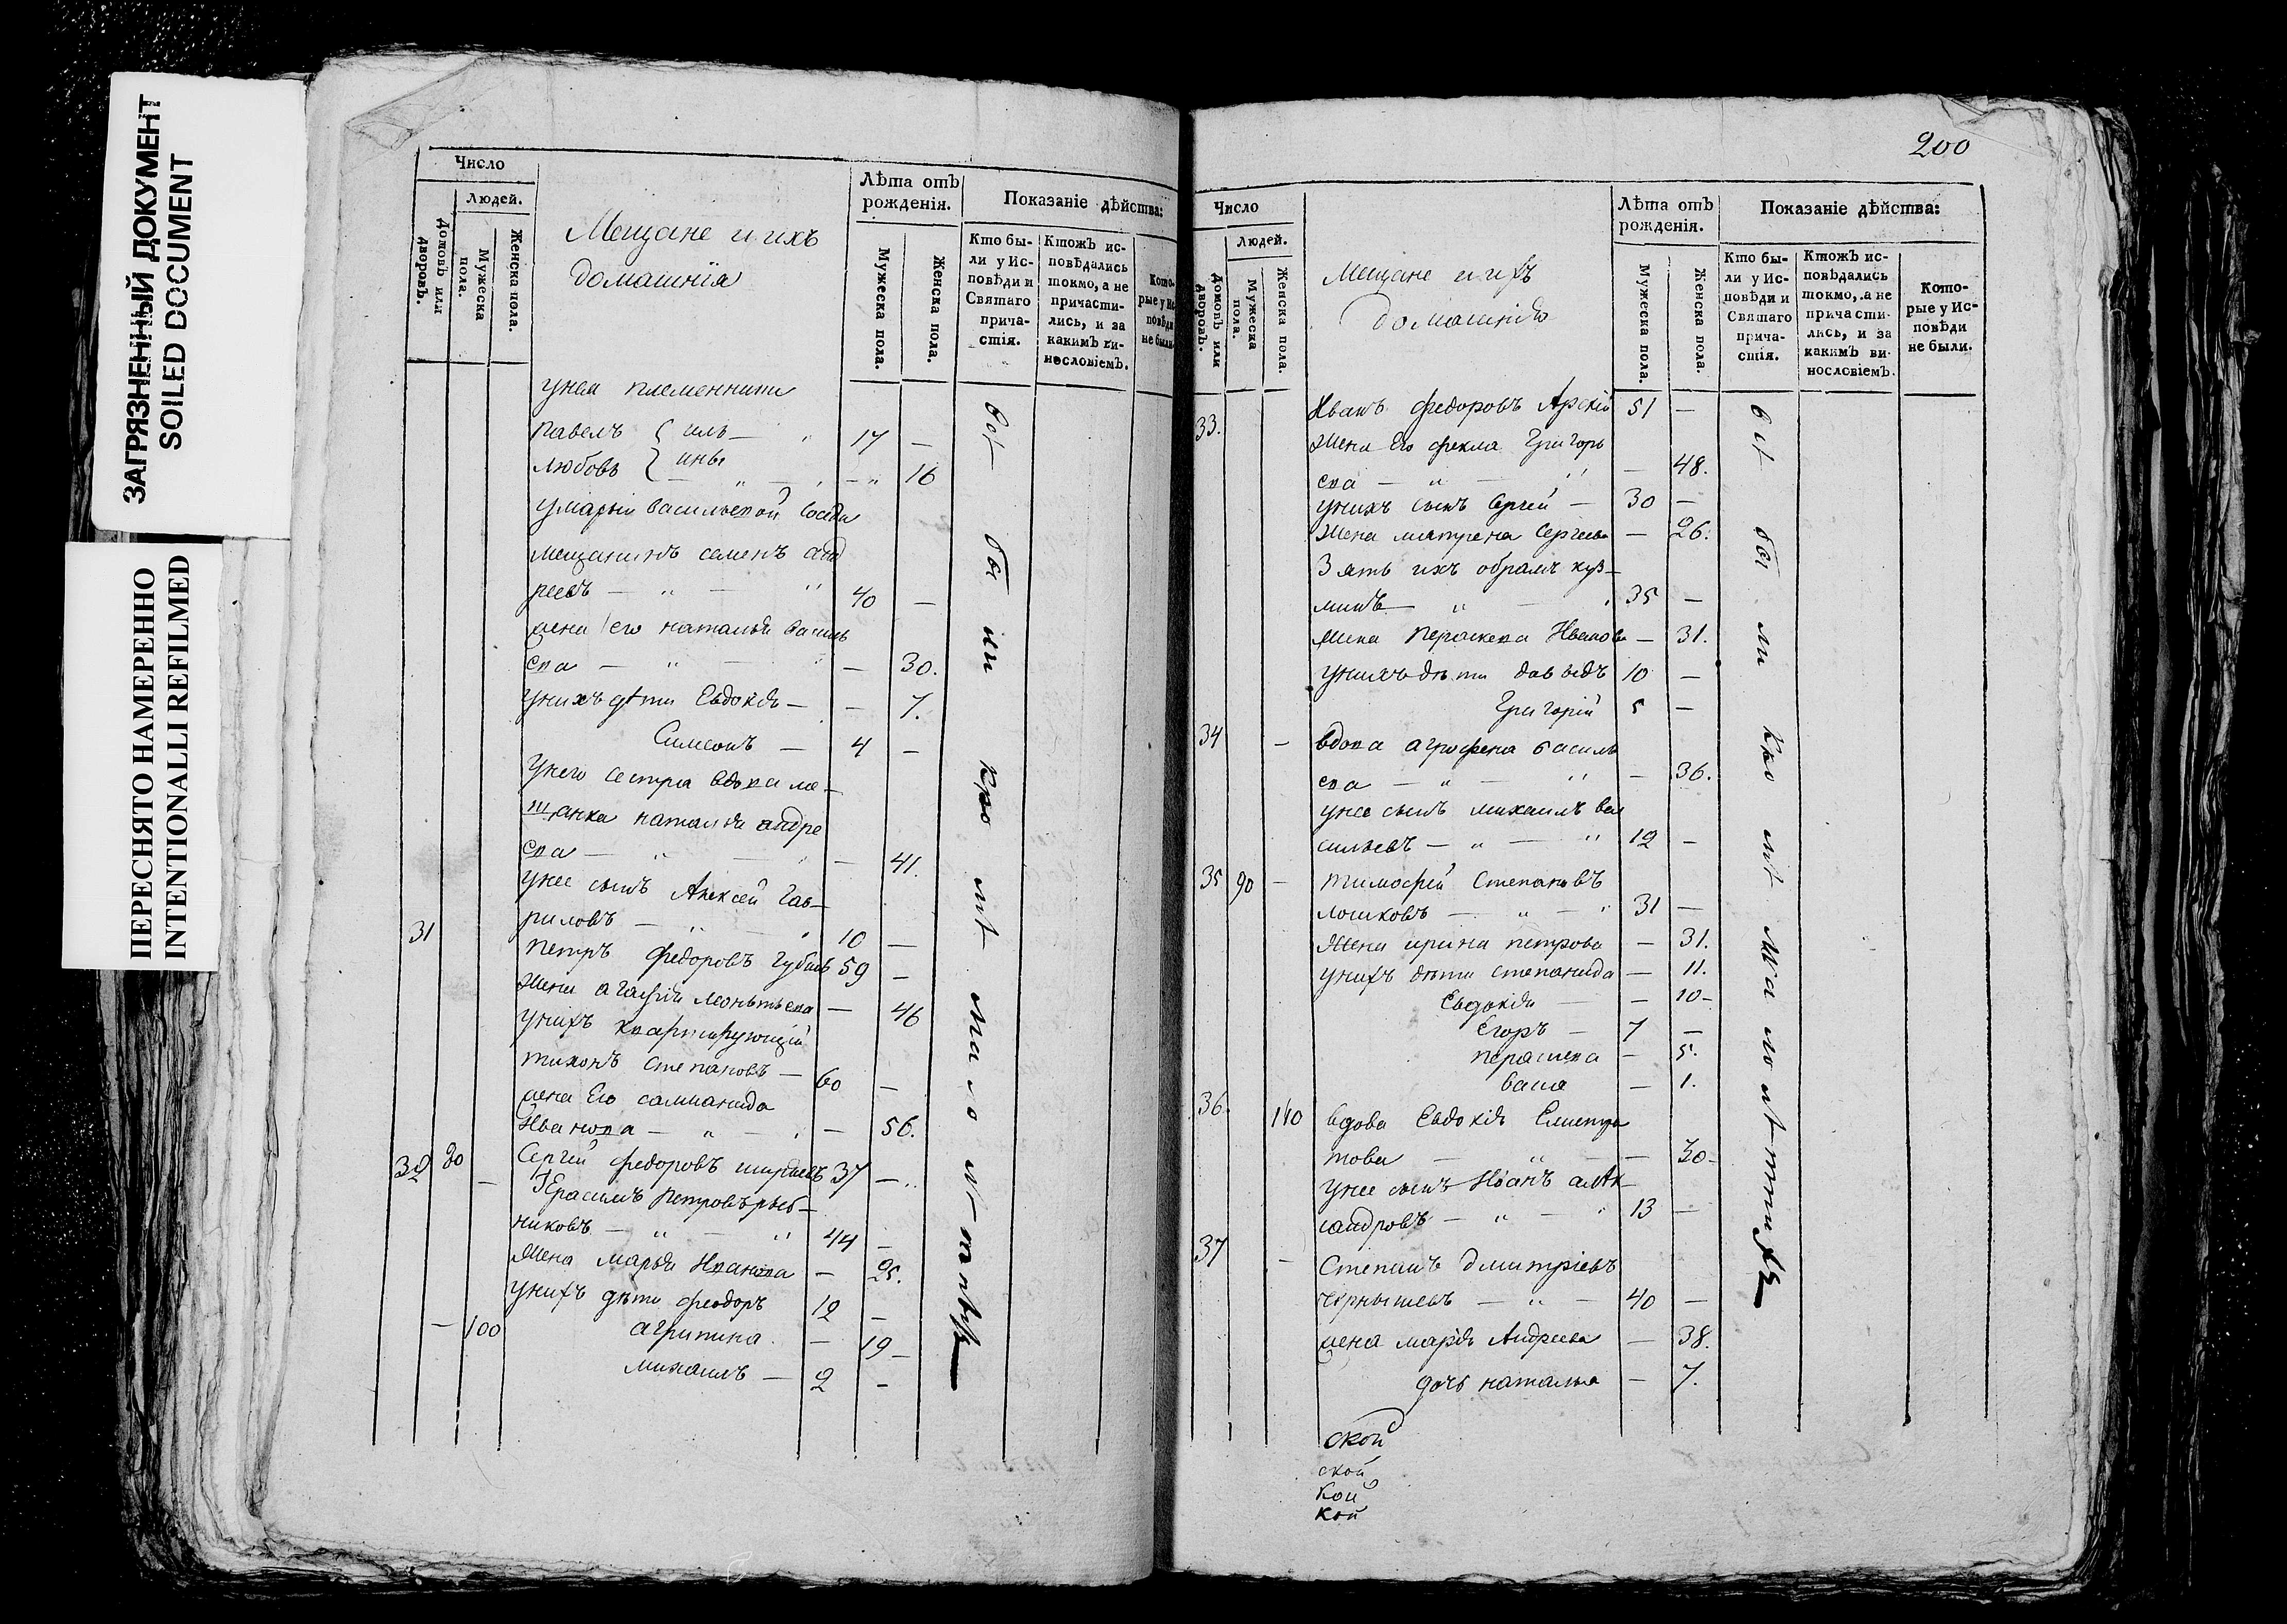 ЗАГРЯЗНЕННЫЙ ДОКУМЕНТ
SOILED DOCUMENT
ПЕРЕСНЯТО НАМЕРЕННО
INTENTIONALLI REFILMED
Число
Людей.
Домовъ или дворовъ.
Мужеска пола.
Женска пола.
Мещане и ихъ
домашнія
Лѣта отъ рожденія.
Мужеска пола.
Женска пола.
Показаніе дѣйства:
Кто были у Исповѣди и Святаго причастія.
Ктожъ исповѣдались токмо, а не причастились, и за какимъ винословіемъ.
Которые у Исповѣди не были.
унея племенники
Павелъ 17 —
Любовь — 16
умаріи васильевой соседи
мещанинъ семенъ анд
реевъ — 40 —
жена его наталья василь
ева — — 30.
унихъ дѣти Евдокія — — 7.
Симеонъ — 4 —
Унего сестра вдова ме-
щанка наталья андре
ева — — 41.
унее сынъ Алексей Гав-
риловъ — 10 —
31 петръ федоровъ губинъ 59 —
жена агафія леонтьева — 46
унихъ квартирующій
тихонъ степановъ — 60 —
жена Его
Иванова — — 56.
32 80 — Сергей федоровъ 37 —
Герасимъ петровъ рыб-
никовъ — 44 —
Жена марья Иванова — 25.
унихъ дѣти феодоръ 12 —
— 100 агрипина — 19 —
михаилъ — 2 —
всѣ были кро мѣ мало лѣтнихъ
200
Число
Людей.
Домовъ или дворовъ.
Мужеска пола.
Женска пола.
Мещане и ихъ
домашнія
Лѣта отъ рожденія.
Мужеска пола.
Женска пола.
Показаніе дѣйства:
Кто были у Исповѣди и Святаго причастія.
Ктожъ исповѣдались токмо, а не причастились, и за какимъ винословіемъ.
Которые у Исповѣди не были.
33. Иванъ федоровъ Арскій 51 —
Жена Его фекла Григорь
ева — — 48.
унихъ сынъ Сергей — 30 —
Жена матрена Сергеева — 26.
Зять ихъ обрамъ куз-
минъ — 35 —
Жена Пераскева Иванова — 31.
унихъ дѣти давыдъ 10 —
Григорій 5 —
34 — вдова агрофена василь
ева — — 36.
унее сынъ михаилъ ва
сильевъ — 12 —
35 90 — тимофей Степановъ
лошковъ — 31 —
Жена ирина петрова — 31.
унихъ дѣти степанида — 11.
Евдокія — — 10 —
Егоръ — 7 —
пераскева — 5.
васса — 1.
36. 110 вдова Евдокія
това — — 30 —
унее сынъ Иванъ
сандровъ — 13 —
37 — Степанъ дмитріевъ
чернышевъ — 40 —
жена марія Андреева — 38.
дочь наталья — 7.
всѣ были кро мѣ мало лѣтнихъ
ской
ской
кой
кой